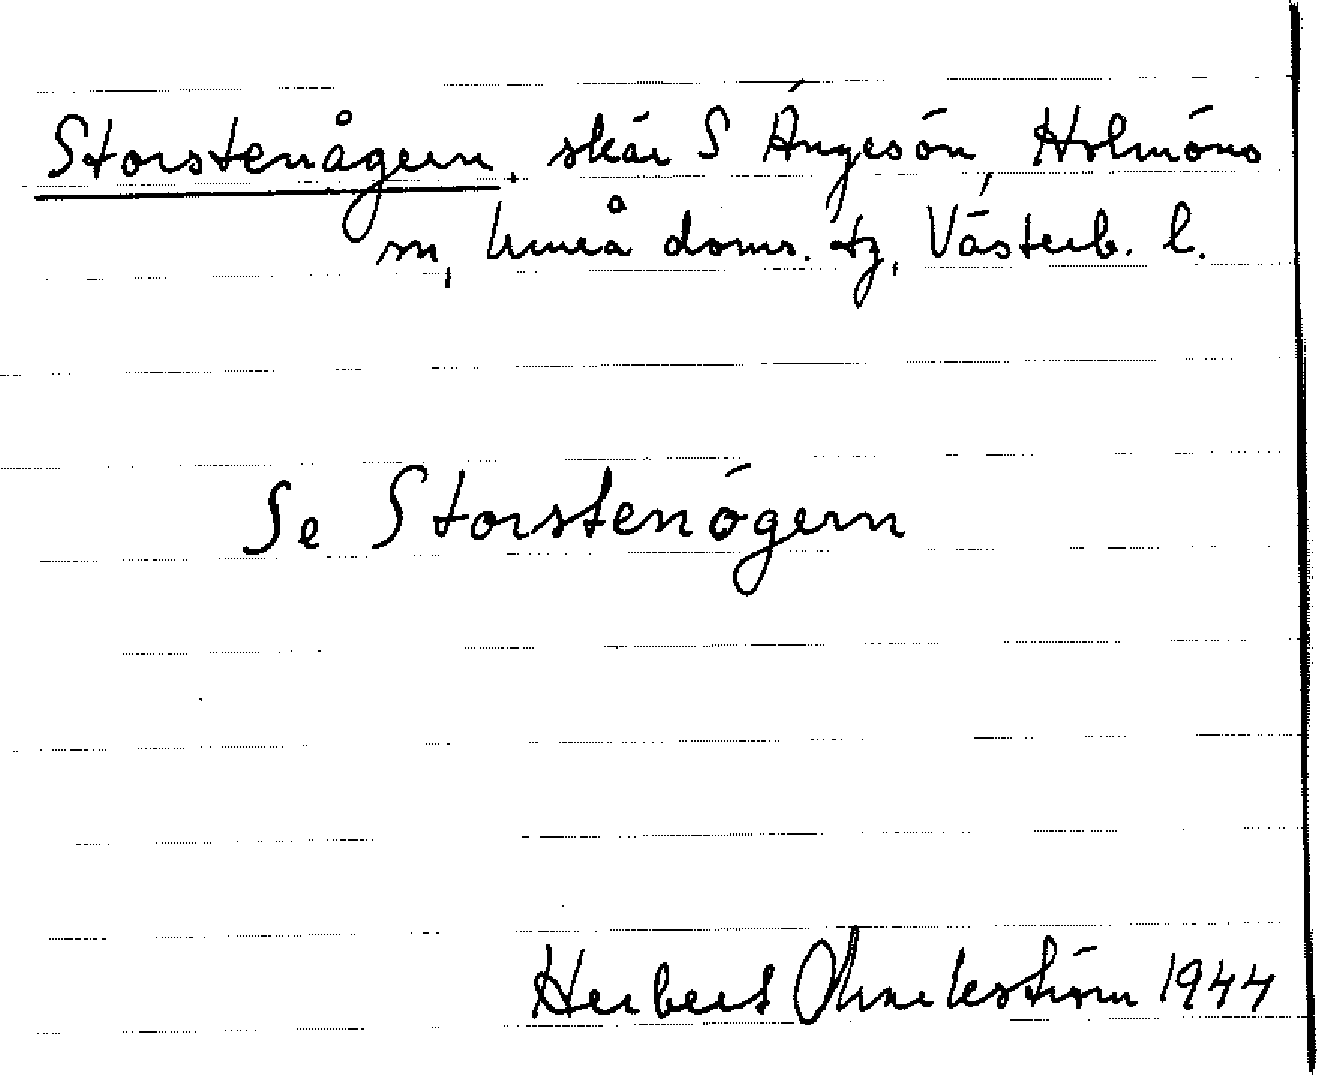 Storstenågern, skär S Ängesön, Holmöns
sn, Umeå doms. tg, Västerb. l.
Se Storstenögern
Herbert 1944